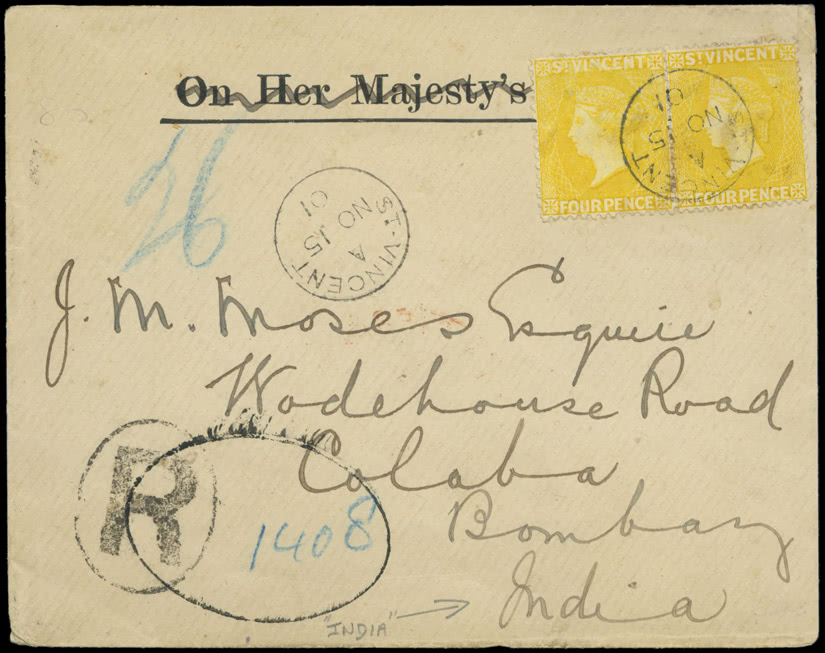 On Her Majesty's
ST VINCENT
FOUR PENCE
ST VINCENT
FOUR PENCE
ST-VINCENT
A
NO 15
01
ST-VINCENT
A
NO 15
01
J. M. Moses Esquire
Wodehouse Road
Colaba
Bombay
India
R
1408
"INDIA"